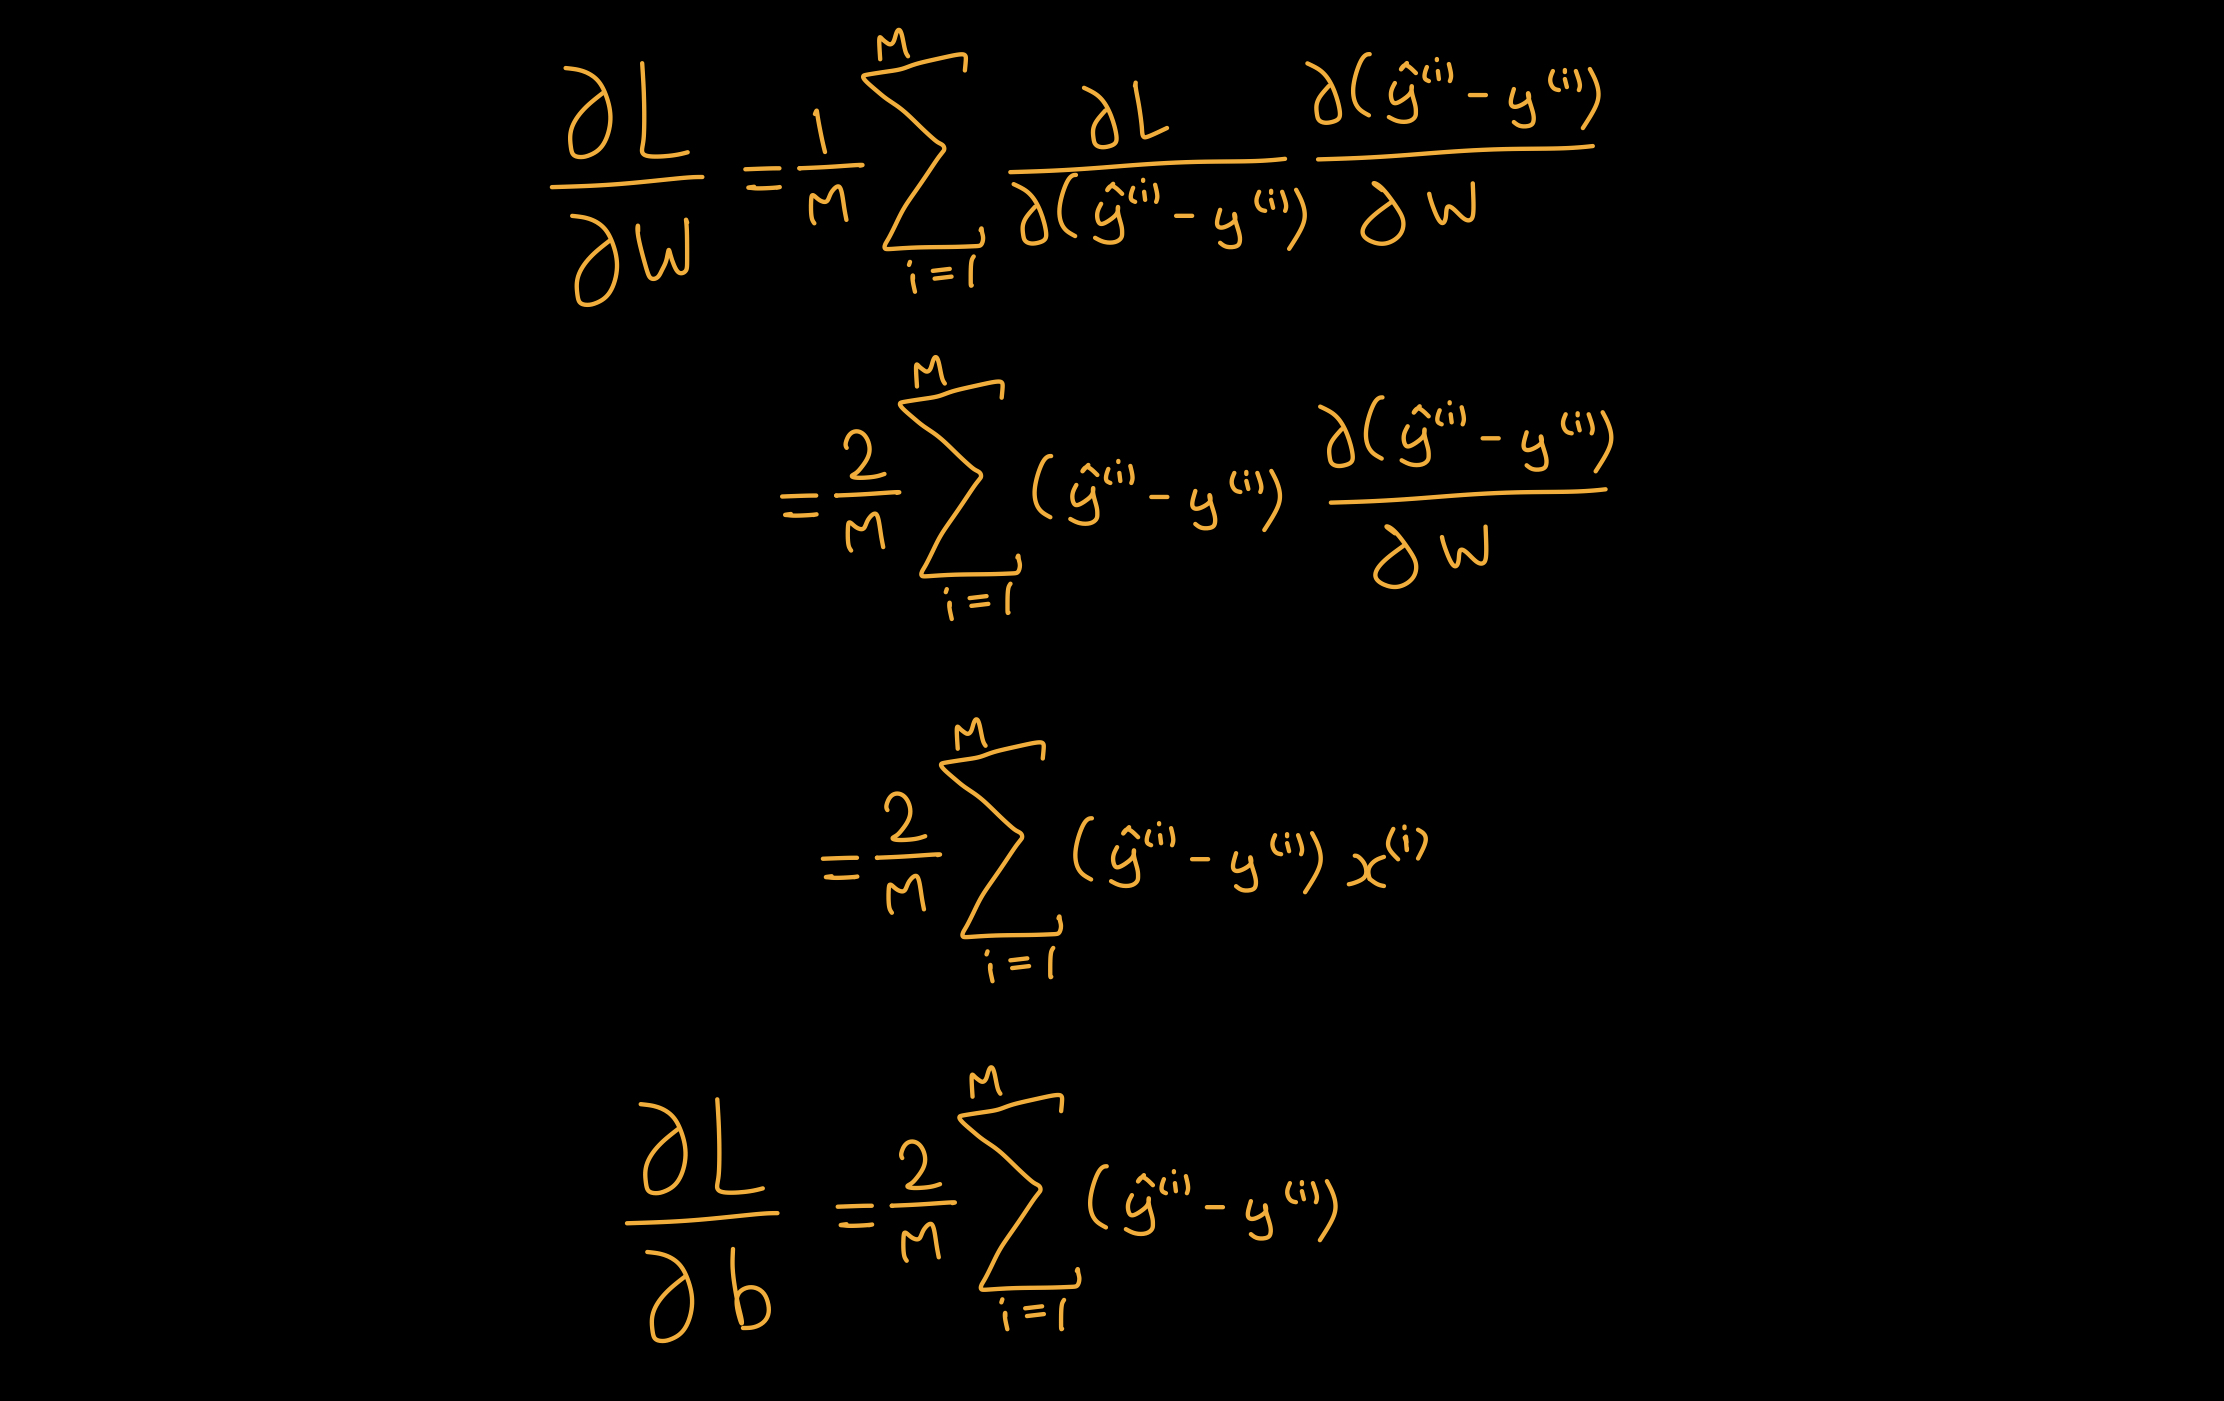 ∂L/∂W = 1/M ∑_{i=1}^{M} ∂L/∂(ŷ^{(i)} - y^{(i)}) ∂(ŷ^{(i)} - y^{(i)})/∂W
= 2/M ∑_{i=1}^{M} (ŷ^{(i)} - y^{(i)}) ∂(ŷ^{(i)} - y^{(i)})/∂W
= 2/M ∑_{i=1}^{M} (ŷ^{(i)} - y^{(i)}) x^{(i)}
∂L/∂b = 2/M ∑_{i=1}^{M} (ŷ^{(i)} - y^{(i)})